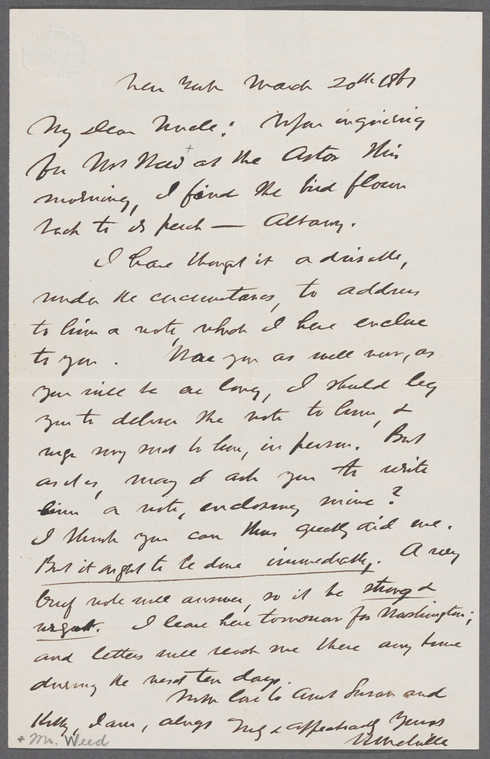 New York March 20th 1861
My Dear Uncle: Upon inquiring
for Mr Weed + at the Astor this
morning, I find the bird flown
back to its perch — Albany.
I have thought it advisable,
under the circumstances, to address
to him a note, which I here enclose
to you. Were you as well now, as
you will be ere long, I should beg
you to deliver the note to him, &
urge my suit to him, in person. But
as it is, may I ask you to write
him a note, enclosing mine?
I think you can thus greatly aid me.
But it ought to be done immediately. A very
brief note will answer, so it be strong &
urgent. I leave here tomorrow for Washington;
and letters will reach me there any time
during the next ten days.
With love to Aunt Susan and
Kitty, I am, always Truly & affectionately Yours
H Melville
+ Mr. Weed